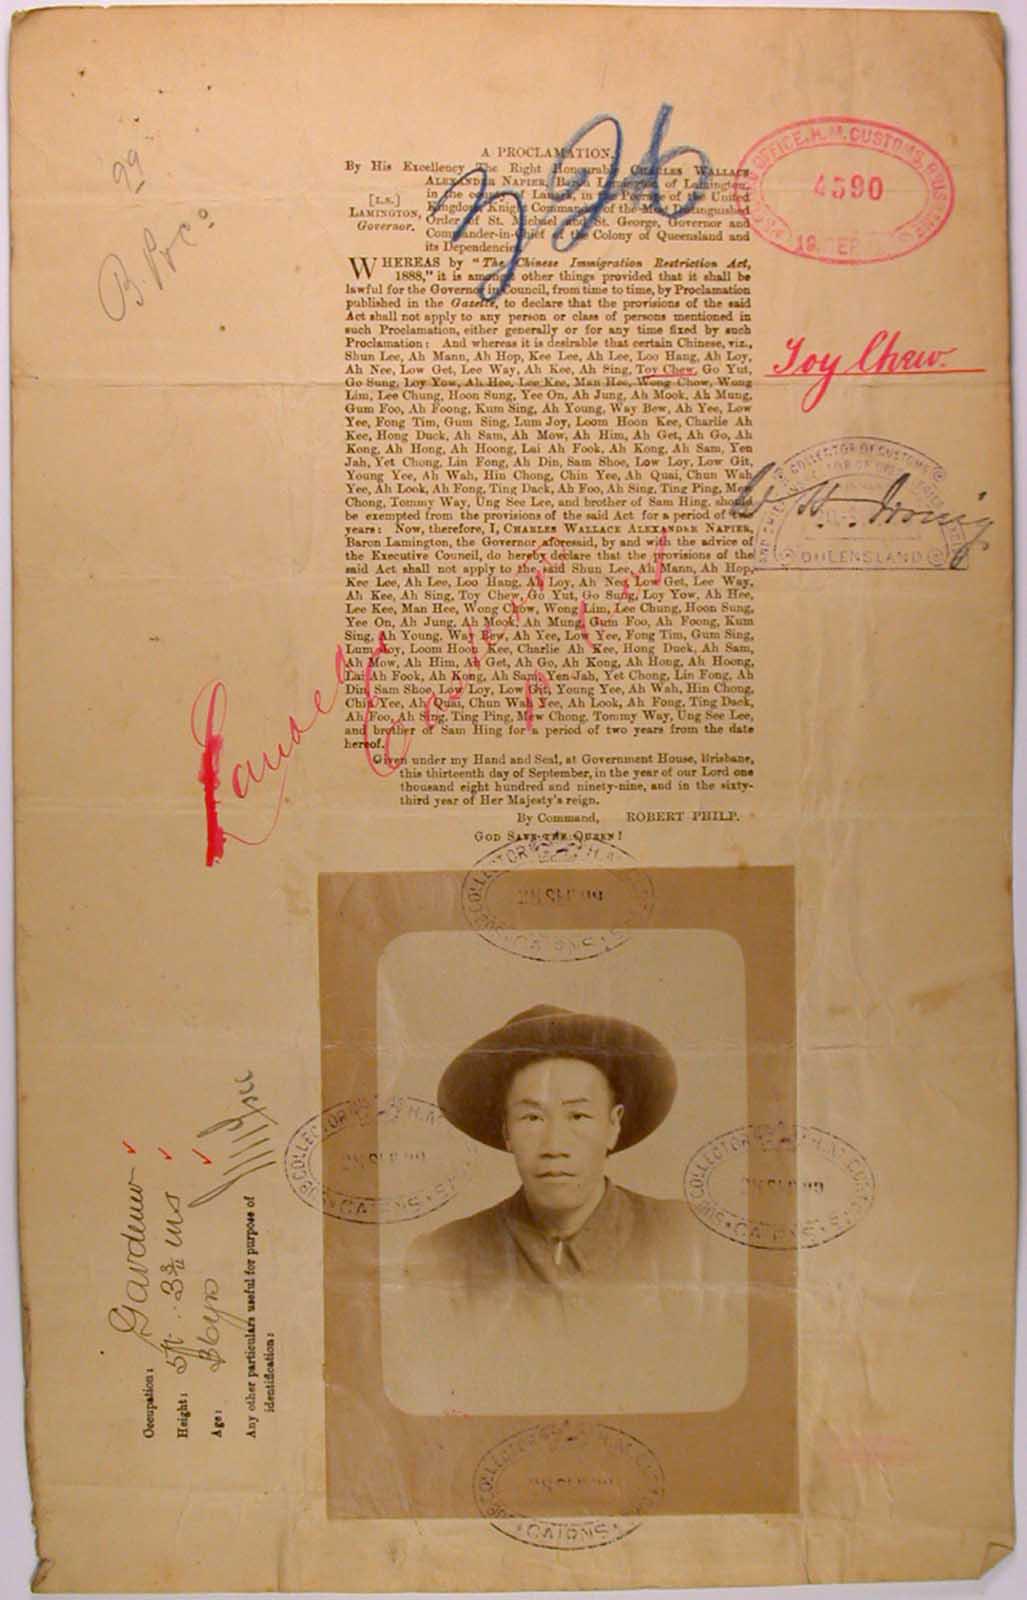 99
B. Pro
326
A PROCLAMATION.
By His Excellency The Right Honourable CHARLES WALLACE
ALEXANDER NAPIER, Baron Lamington of Lamington,
in the county of Lanark, in the Peerage of the United
[L.S.] Kingdom, Knight Commander of the Most Distinguished
LAMINGTON, Order of St. Michael and St. George, Governor and
Governor. Commander-in-Chief of the Colony of Queensland and
its Dependencies.
WHEREAS by "The Chinese Immigration Restriction Act,
1888," it is amongst other things provided that it shall be
lawful for the Governor in Council, from time to time, by Proclamation
published in the Gazette, to declare that the provisions of the said
Act shall not apply to any person or class of persons mentioned in
such Proclamation, either generally or for any time fixed by such
Proclamation: And whereas it is desirable that certain Chinese, viz.,
Shun Lee, Ah Mann, Ah Hop, Kee Lee, Ah Lee, Loo Hang, Ah Loy,
Ah Nee, Low Get, Lee Way, Ah Kee, Ah Sing, Toy Chew, Go Yut,
Go Sung, Loy Yow, Ah Hee, Lee Kee, Man Hee, Wong Chow, Wong
Lim, Lee Chung, Hoon Sung, Yee On, Ah Jung, Ah Mook, Ah Mung,
Gum Foo, Ah Foong, Kum Sing, Ah Young, Way Bew, Ah Yee, Low
Yee, Fong Tim, Gum Sing, Lum Joy, Loom Hoon Kee, Charlie Ah
Kee, Hong Duck, Ah Sam, Ah Mow, Ah Him, Ah Get, Ah Go, Ah
Kong, Ah Hong, Ah Hoong, Lai Ah Fook, Ah Kong, Ah Sam, Yen
Jah, Yet Chong, Lin Fong, Ah Din, Sam Shoe, Low Loy, Low Git,
Young Yee, Ah Wah, Hin Chong, Chin Yee, Ah Quai, Chun Wah
Yee, Ah Look, Ah Fong, Ting Dack, Ah Foo, Ah Sing, Ting Ping, Mew
Chong, Tommy Way, Ung See Lee, and brother of Sam Hing, should
be exempted from the provisions of the said Act for a period of two
years: Now, therefore, I, CHARLES WALLACE ALEXANDER NAPIER,
Baron Lamington, the Governor aforesaid, by and with the advice of
the Executive Council, do hereby declare that the provisions of the
said Act shall not apply to the said Shun Lee, Ah Mann, Ah Hop,
Kee Lee, Ah Lee, Loo Hang, Ah Loy, Ah Nee, Low Get, Lee Way,
Ah Kee, Ah Sing, Toy Chew, Go Yut, Go Sung, Loy Yow, Ah Hee,
Lee Kee, Man Hee, Wong Chow, Wong Lim, Lee Chung, Hoon Sung,
Yee On, Ah Jung, Ah Mook, Ah Mung, Gum Foo, Ah Foong, Kum
Sing, Ah Young, Way Bew, Ah Yee, Low Yee, Fong Tim, Gum Sing,
Lum Joy, Loom Hoon Kee, Charlie Ah Kee, Hong Duck, Ah Sam,
Ah Mow, Ah Him, Ah Get, Ah Go, Ah Kong, Ah Hong, Ah Hoong,
Lai Ah Fook, Ah Kong, Ah Sam, Yen Jah, Yet Chong, Lin Fong, Ah
Din, Sam Shoe, Low Loy, Low Git, Young Yee, Ah Wah, Hin Chong,
Chin Yee, Ah Quai, Chun Wah Yee, Ah Look, Ah Fong, Ting Dack,
Ah Foo, Ah Sing, Ting Ping, Mew Chong, Tommy Way, Ung See Lee,
and brother of Sam Hing for a period of two years from the date
hereof.
Given under my Hand and Seal, at Government House, Brisbane,
this thirteenth day of September, in the year of our Lord one
thousand eight hundred and ninety-nine, and in the sixty-
third year of Her Majesty's reign.
By Command, ROBERT PHILP.
GOD SAVE THE QUEEN!
OFFICE, H.M. CUSTOMS, BRISBANE
4590
19. SEP
Toy Chew.
COLLECTOR OF CUSTOMS
QUEENSLAND
W H Irving
Landed
SUB COLLECTOR H.M. CUSTOMS
CAIRNS
SUB COLLECTOR H.M.
CAIRNS
SUB COLLECTOR H.M. CUSTOMS
CAIRNS
SUB COLLECTOR H.M. CUSTOMS
CAIRNS
Occupation: Gardener
Height: 5ft. 3¾ ins
Age: 36yrs
Any other particulars useful for purpose of
identification: